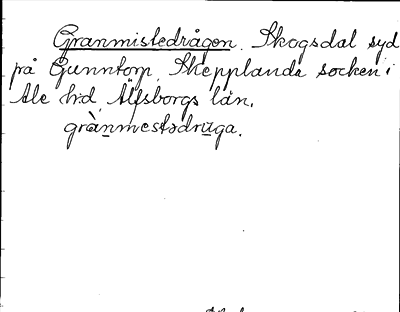 Granmistedrågen. Skogsdal syd
på Gunntorp, Skepplanda socken i
Ale h:d, Älfsborgs län.
grànmestədruga.